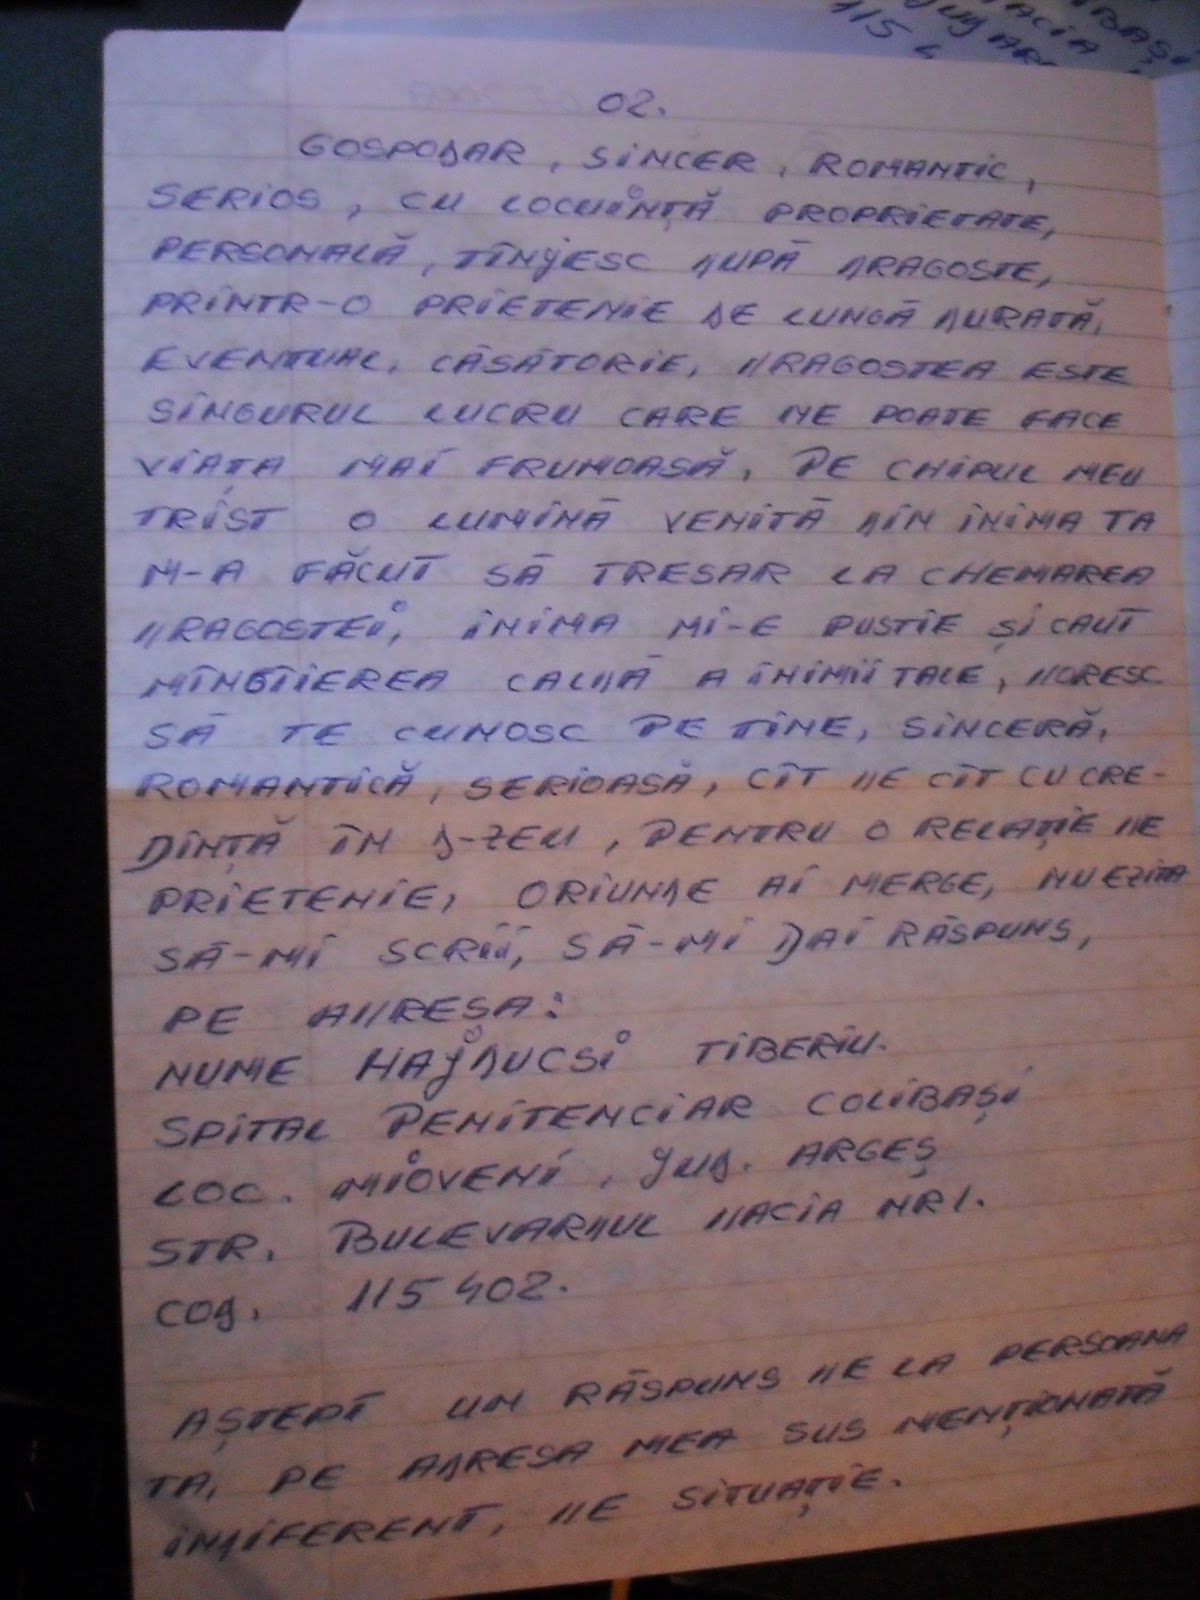 02.
GOSPODAR, SINCER, ROMANTIC,
SERIOS, CU LOCUINȚĂ PROPRIETATE,
PERSONALĂ, TÎNJESC DUPĂ DRAGOSTE,
PRINTR-O PRIETENIE DE LUNGĂ DURATĂ,
EVENTUAL, CĂSĂTORIE, DRAGOSTEA ESTE
SINGURUL LUCRU CARE NE POATE FACE
VIAȚA MAI FRUMOASĂ, PE CHIPUL MEU
TRIST O LUMINĂ VENITĂ DIN INIMA TA
M-A FĂCUT SĂ TRESAR LA CHEMAREA
DRAGOSTEI, INIMA MI-E PUSTIE ȘI CAUT
MÎNGÎIEREA CALDĂ A INIMII TALE, DORESC
SĂ TE CUNOSC PE TINE, SINCERĂ,
ROMANTICĂ, SERIOASĂ, CÎT DE CÎT CU CRE-
DINȚĂ ÎN D-ZEU, PENTRU O RELAȚIE DE
PRIETENIE, ORIUNDE AI MERGE, NU EZITA
SĂ-MI SCRII, SĂ-MI DAI RĂSPUNS,
PE ADRESA:
NUME HAJDUCSI TIBERIU.
SPITAL PENITENCIAR COLIBAȘI
LOC. MIOVENI, JUD. ARGEȘ
STR. BULEVARDUL DACIA NR 1.
COD. 115402.
AȘTEPT UN RĂSPUNS DE LA PERSOANA
TA, PE ADRESA MEA SUS MENȚIONATĂ
INDIFERENT, DE SITUAȚIE.